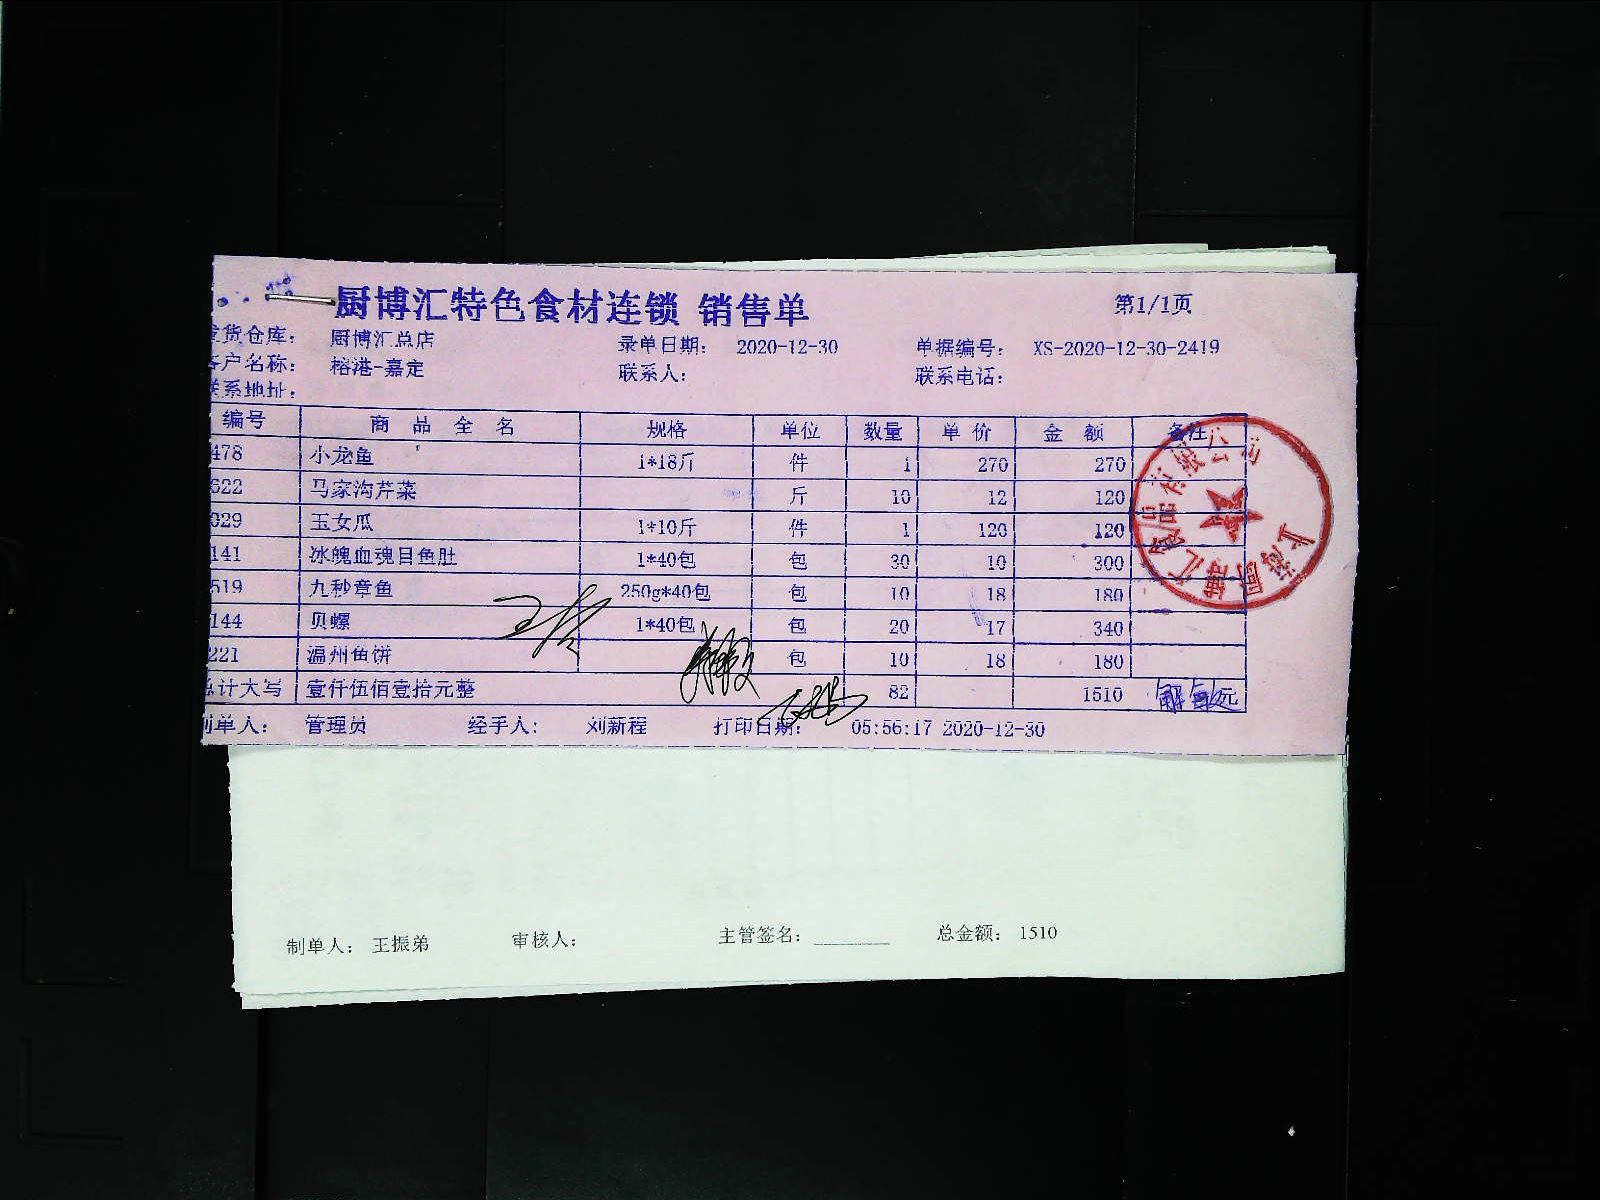 厨博汇特色食材连锁 销售单 第1/1页
发货仓库： 厨博汇总店 录单日期： 2020-12-30 单据编号： XS-2020-12-30-2419
客户名称： 榕港-嘉定 联系人： 联系电话：
联系地址：
编号 商品全名 规格 单位 数量 单价 金额 备注
478 小龙鱼 1*18斤 件 1 270 270
622 马家沟芹菜 斤 10 12 120
029 玉女瓜 1*10斤 件 1 120 120
141 冰魄血魂目鱼肚 1*40包 包 30 10 300
519 九秒章鱼 250g*40包 包 10 18 180
144 贝螺 1*40包 包 20 17 340
221 温州鱼饼 包 10 18 180
总计大写 壹仟伍佰壹拾元整 82 1510
制单人： 管理员 经手人： 刘新程 打印日期： 05:56:17 2020-12-30
上海厨博汇食品有限公司
制单人： 王振弟 审核人： 主管签名： ________ 总金额： 1510